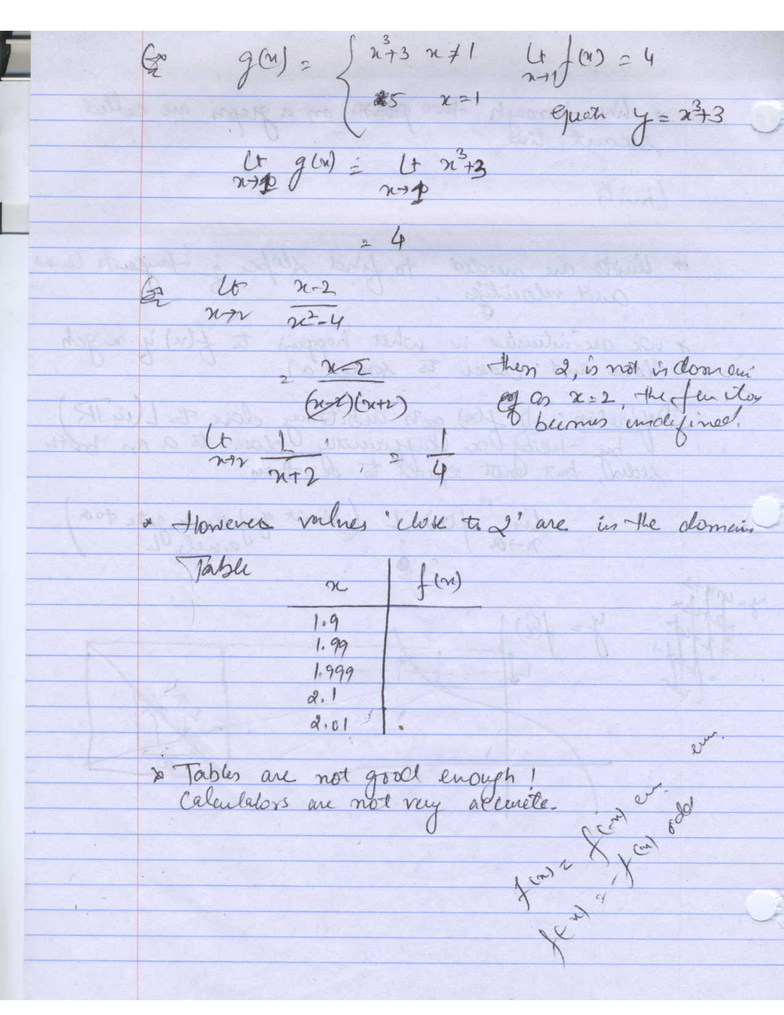 Ex g(x) = { x³+3 x≠1 Lt x→1 f(x) = 4
5 x=1 y = x³+3
Lt x→1 g(x) = Lt x→1 x³+3
= 4
Ex Lt x→2 x-2 / x²-4
= x-2 / (x-2)(x+2) then 2, is not is domain
as x=2, the function
becomes undefined.
Lt x→2 1 / x+2 = 1/4
* However values 'close to 2' are in the domain
Table
x | f(x)
1.9
1.99
1.999
2.1
2.01
* Tables are not good enough!
Calculators are not very accurate.
f(x) = f(-x) even
f(-x) = -f(x) odd